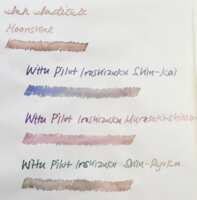 Moonshine
With Pilot Iroshizuku Shin-kai
With Pilot Iroshizuku Murasaki-shikibu
With Pilot Iroshizuku Shin-Ryoku